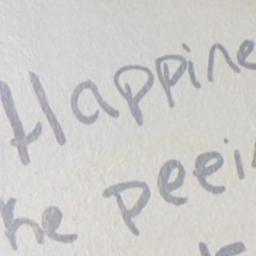 Happine
he peei